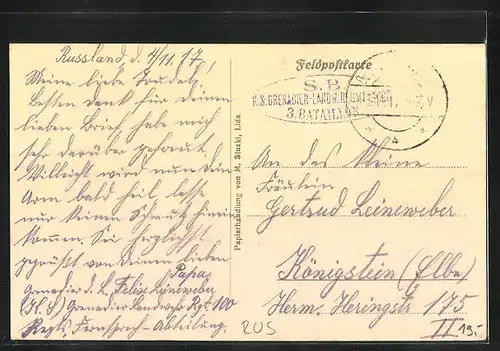 Russland, d. 4/11. 17.
Meine liebe Trudel,
Besten Dank für deinen
lieben Brief, habe mich
sehr darüber gefreut.
Vielleicht wird nun dein
Arm bald heil, lasse
nur keinen Schmutz hinein
kommen. Sei herzlichst
gegrüßt von deinem lieben
Papa
Grenadier d. L. Felix Leineweber
(K. S.) Grenadier Landw. Rgt. 100
Regts. Fernsprech-Abteilung.
Papierhandlung von M. Stuzki, Lida
Feldpostkarte
S. B.
K. S. GRENADIER-LANDW. REGIMENT 100
3. BATAILLON
An das kleine
Fräulein
Gertrud Leineweber
Königstein (Elbe)
Herm. Heringstr 175
II
RUS
19,-